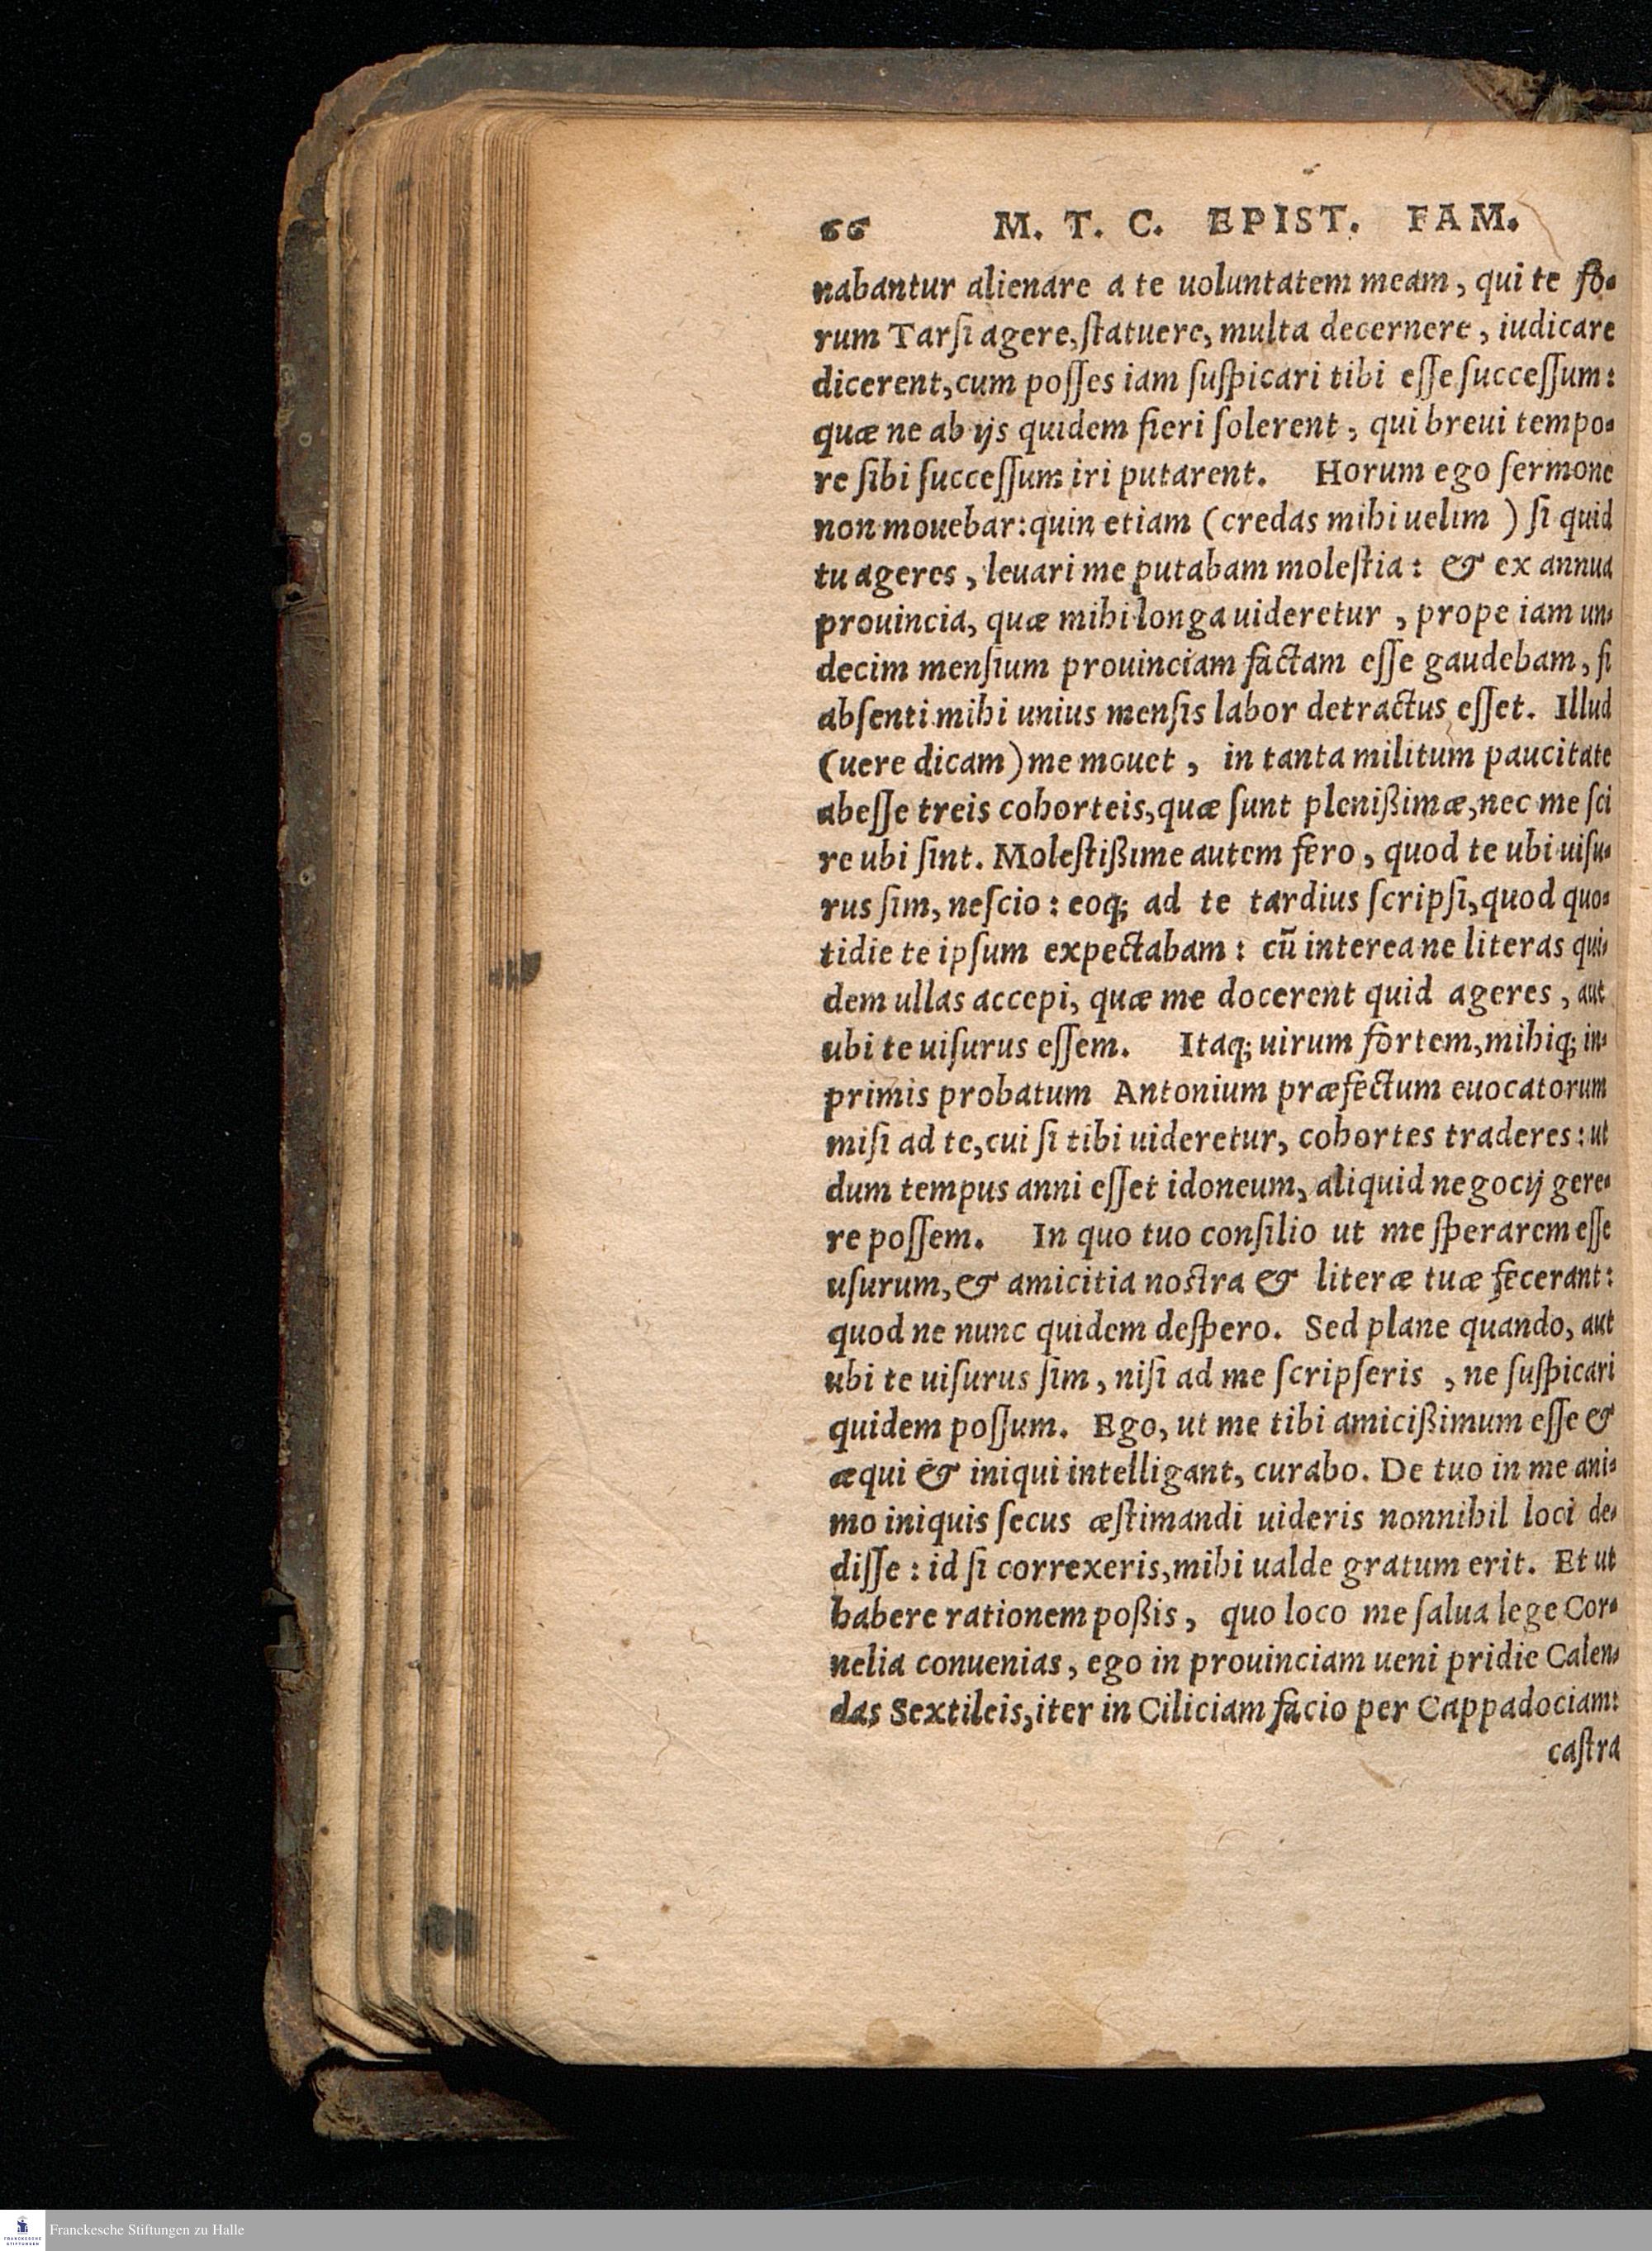 66 M. T. C. EPIST. FAM.
nabantur alienare a te uoluntatem meam, qui te fo-
rum Tarſi agere, ſtatuere, multa decernere, iudicare
dicerent, cum poſſes iam ſuſpicari tibi eſſe ſucceſſum:
quæ ne ab ijs quidem fieri ſolerent, qui breui tempo-
re ſibi ſucceſſum iri putarent. Horum ego ſermone
non mouebar: quin etiam (credas mihi uelim) ſi quid
tu ageres, leuari me putabam moleſtia: & ex annua
prouincia, quæ mihi longa uideretur, prope iam un-
decim menſium prouinciam factam eſſe gaudebam, ſi
abſenti mihi unius menſis labor detractus eſſet. Illud
(uere dicam) me mouet, in tanta militum paucitate
abeſſe treis cohorteis, quæ ſunt pleniſſimæ, nec me ſci
re ubi ſint. Moleſtiſſime autem fero, quod te ubi uiſu-
rus ſim, neſcio: eoq; ad te tardius ſcripſi, quod quo-
tidie te ipſum expectabam: cū interea ne literas qui-
dem ullas accepi, quæ me docerent quid ageres, aut
ubi te uiſurus eſſem. Itaq; uirum fortem, mihiq; in-
primis probatum Antonium præfectum euocatorum
miſi ad te, cui ſi tibi uideretur, cohortes traderes: ut
dum tempus anni eſſet idoneum, aliquid negocij gere-
re poſſem. In quo tuo conſilio ut me ſperarem eſſe
uſurum, & amicitia noſtra & literæ tuæ fecerant:
quod ne nunc quidem deſpero. Sed plane quando, aut
ubi te uiſurus ſim, niſi ad me ſcripſeris, ne ſuſpicari
quidem poſſum. Ego, ut me tibi amiciſſimum eſſe &
æqui & iniqui intelligant, curabo. De tuo in me ani-
mo iniquis ſecus æſtimandi uideris nonnihil loci de-
diſſe: id ſi correxeris, mihi ualde gratum erit. Et ut
habere rationem poſſis, quo loco me ſalua lege Cor-
nelia conuenias, ego in prouinciam ueni pridie Calen-
das Sextileis, iter in Ciliciam facio per Cappadociam:
caſtra
FRANCKESCHE STIFTUNGEN
Franckesche Stiftungen zu Halle